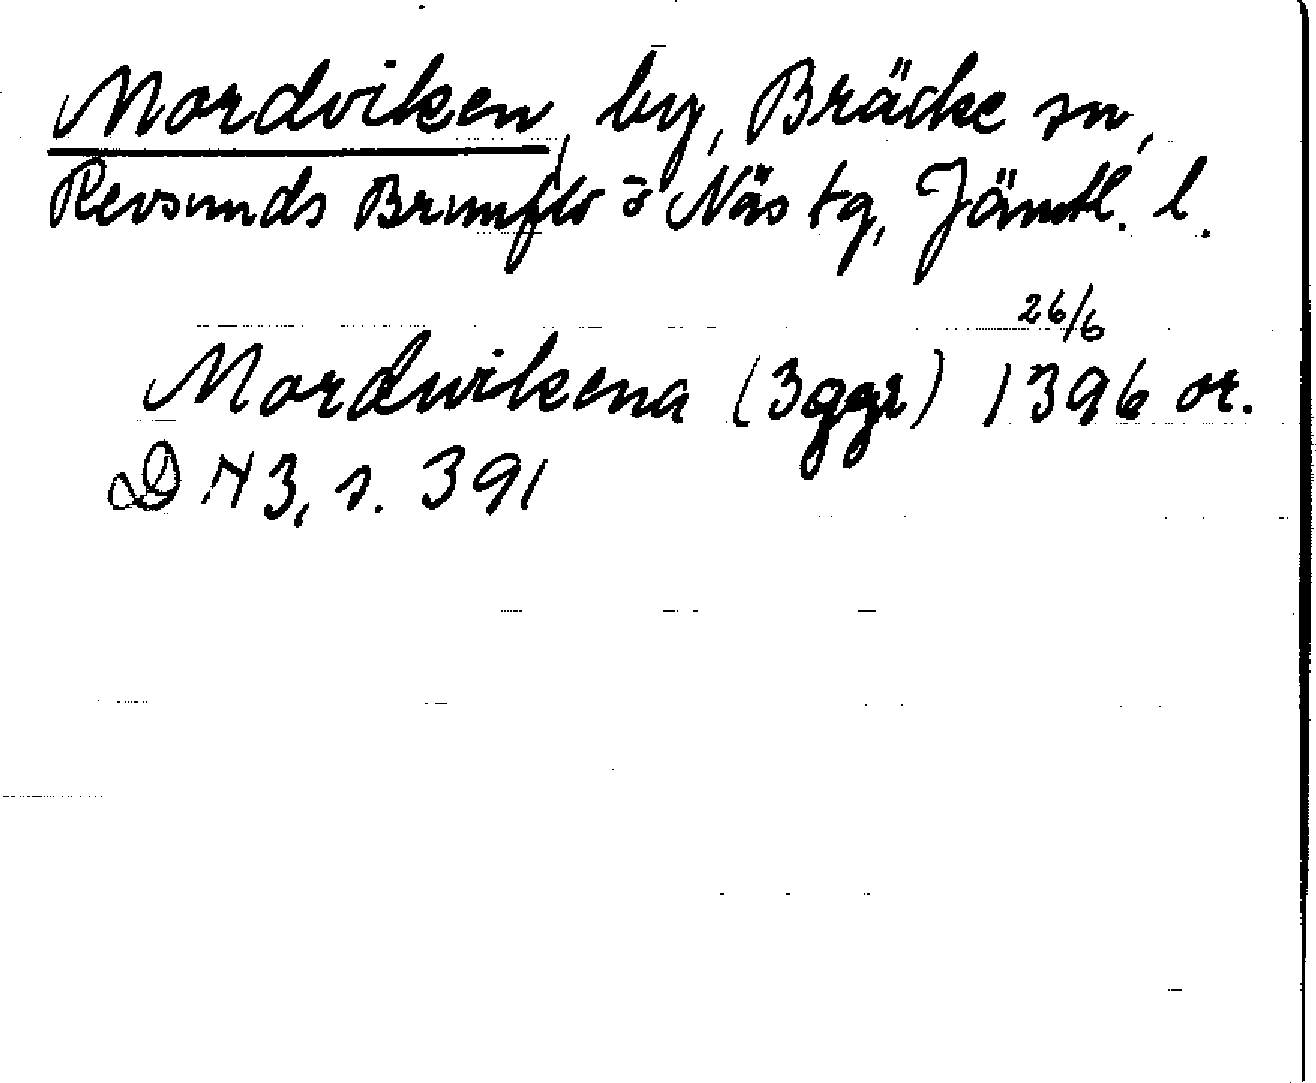 Mordviken, by, Bräcke sn,
Revsunds Brunflo o Näs tg, Jämtl. l.
26/6
Mordwikena (3ggr) 1396 or.
DN 3, s. 391